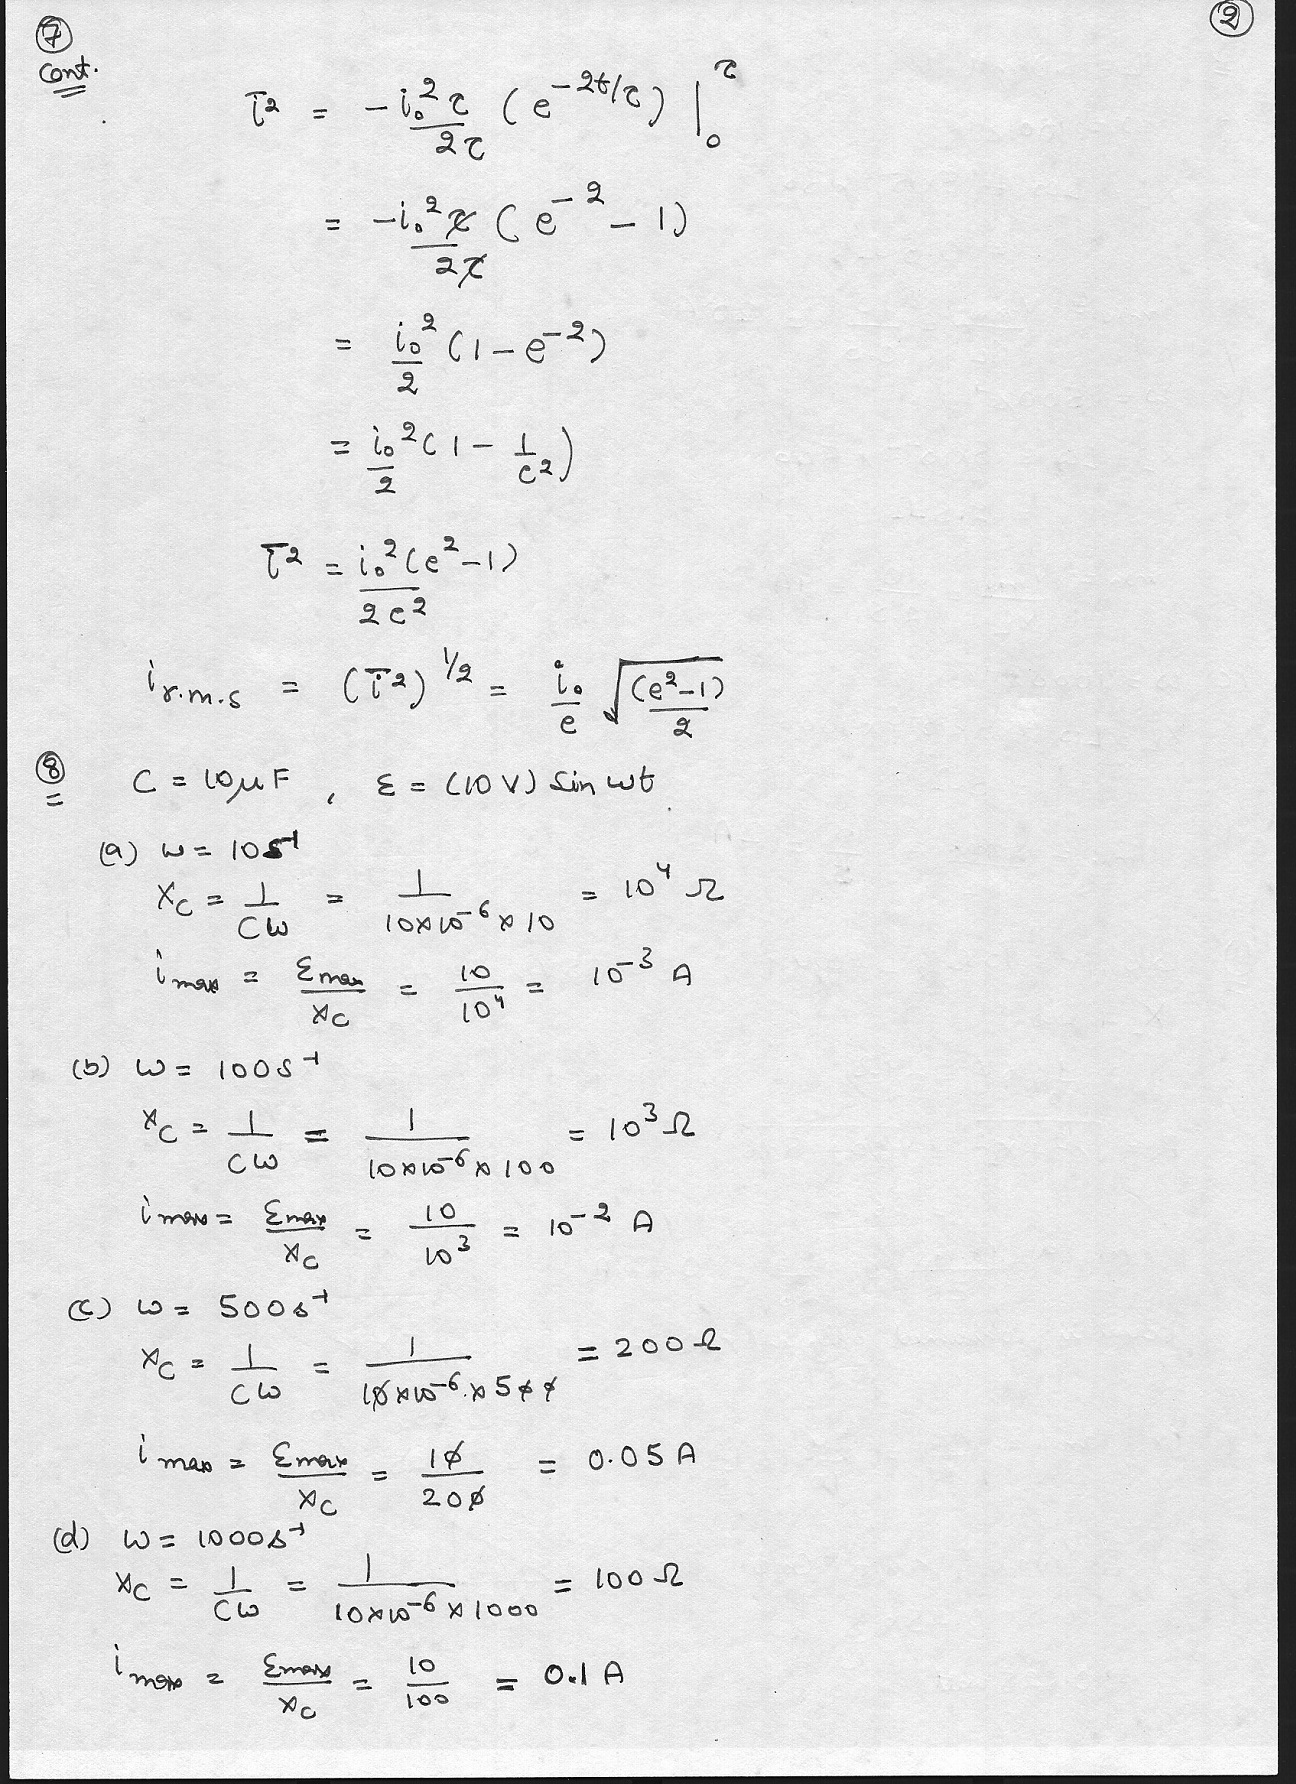 ⑦ ②
Cont.
i̅² = -i₀²τ/2τ (e^(-2t/τ)) |₀^τ
= -i₀²τ/2τ (e⁻² - 1)
= i₀²/2 (1 - e⁻²)
= i₀²/2 (1 - 1/e²)
i̅² = i₀²(e² - 1)/2e²
i r.m.s = (i̅²)^(1/2) = i₀/e √((e² - 1)/2)
⑧ C = 10μF, ε = (10 V) Sin ωt
(a) ω = 10 s⁻¹
X_C = 1/Cω = 1/(10×10⁻⁶×10) = 10⁴ Ω
i max = ε max/X_C = 10/10⁴ = 10⁻³ A
(b) ω = 100 s⁻¹
X_C = 1/Cω = 1/(10×10⁻⁶×100) = 10³ Ω
i max = ε max/X_C = 10/10³ = 10⁻² A
(c) ω = 500 s⁻¹
X_C = 1/Cω = 1/(10×10⁻⁶×500) = 200 Ω
i max = ε max/X_C = 10/200 = 0.05 A
(d) ω = 1000 s⁻¹
X_C = 1/Cω = 1/(10×10⁻⁶×1000) = 100 Ω
i max = ε max/X_C = 10/100 = 0.1 A